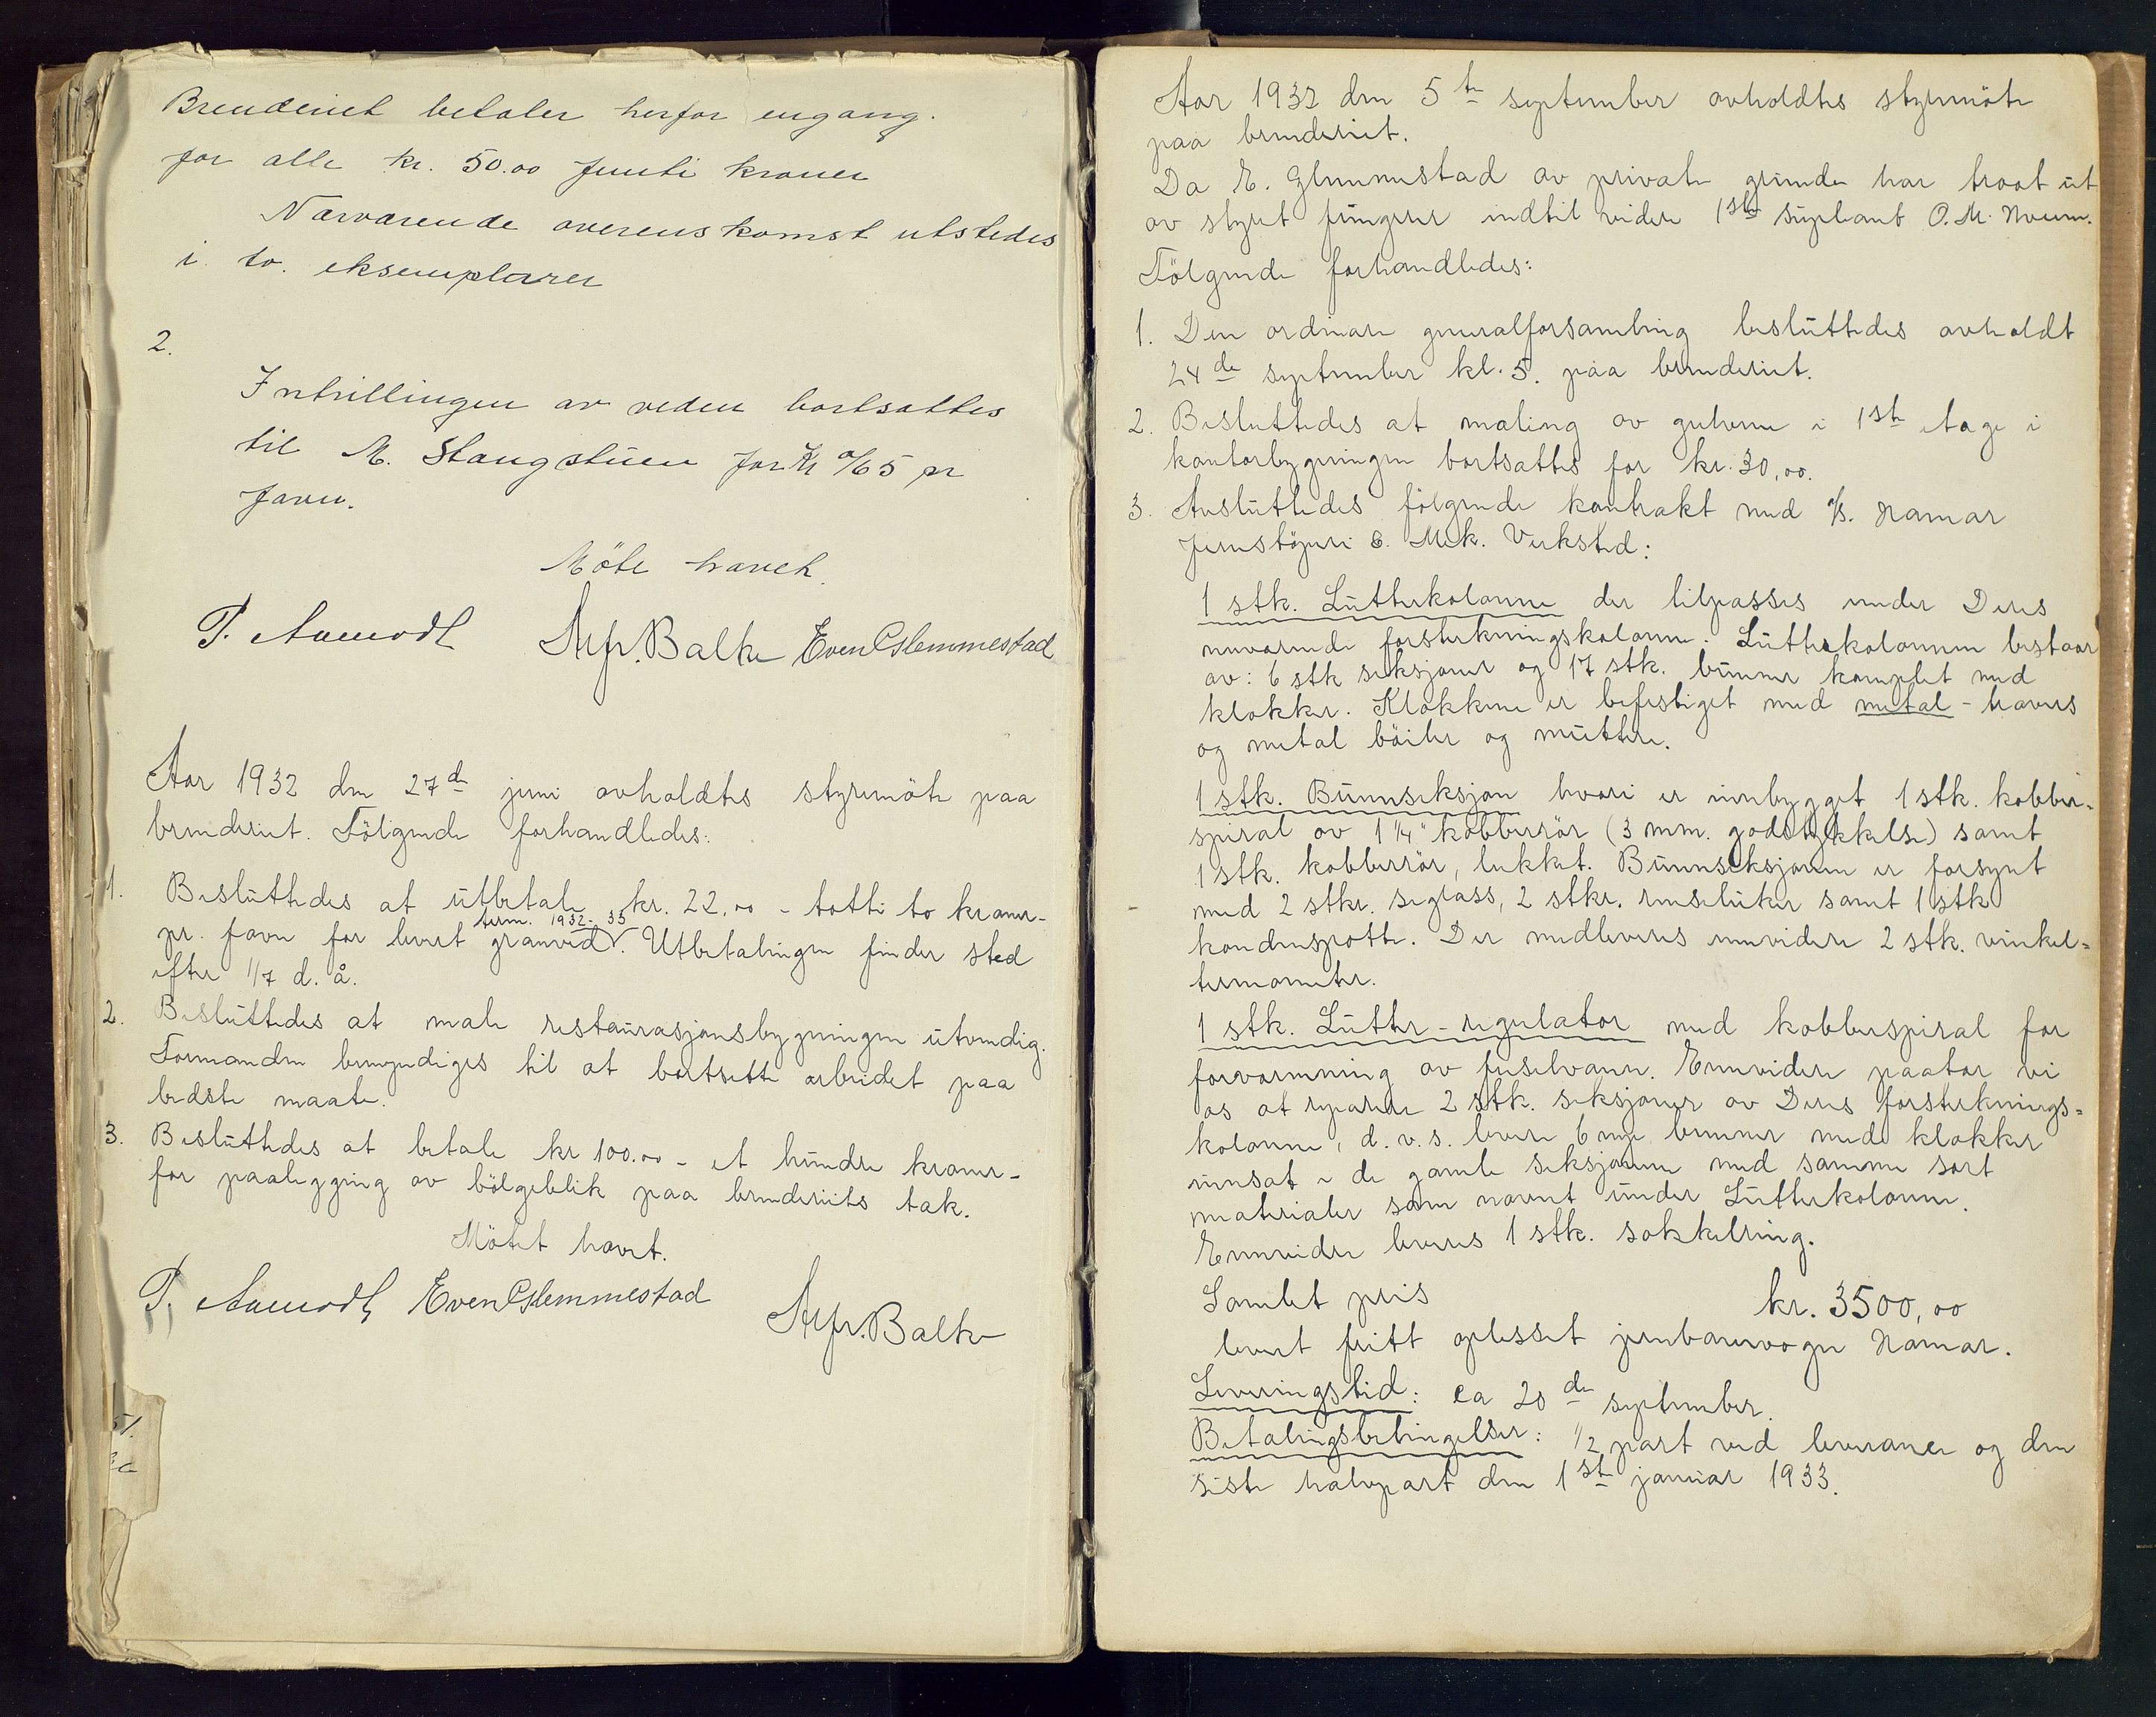 Brenderiet betaler herfor engang.
for alle kr. 50.00 femti kroner
Nærværende overenskomst utstedes
i to. eksemplarer
2.
Intrillingen av veden bortsattes
til M. Stangstuen for Kr 0/65 pr
favn.
Möte hævet.
P. Aamodt Alfr. Balke Even Glemmestad
Aar 1932 den 27de juni avholdtes styremöte paa
brenderiet. Fölgende forhandledes:
1. Besluttedes at utbetale kr. 22.00 - totti to kroner-
term. 1932-33
pr. favn for levert granved. Utbetalingen finder sted
efter 1/7 d. å.
2. Besluttedes at male restaurasjonsbygningen utvendig.
Formanden bemyndiges til at bortsette arbeidet paa
bedste maate.
3. Besluttedes at betale kr 100.00 - et hundre kroner-
for paalegging av bölgeblik paa brenderiets tak.
Mötet hævet.
P. Aamodt Even Glemmestad
Alfr. Balke
Aar 1932 den 5te september avholdtes styremöte
paa brenderiet.
Da E. Glemmestad av private grunde har traat ut
av styret fungerer indtil videre 1ste supleant O. M.
Fölgende forhandledes:
1. Den ordinære generalforsamling besluttedes avholdt
24de september kl. 5. paa brenderiet.
2. Besluttedes at maling av gulvene i 1ste etage i
kontorbygningen bortsattes for kr. 30,00.
3. Avsluttedes fölgende kontrakt med A/S. Hamar
Jernstöperi & Mek. Verksted:
1 stk. Lutterkolonne der tilpasses under Deres
nuværende forsterkningskolonne. Lutterkolonnen bestaar
av: 6 stk seksjoner og 17 stk. bunner komplet med
klokker. Klokkene er befestiget med metal - travers
og metal böiler og muttere.
1 stk. Bunnseksjon hvori er innbygget 1 stk. kobber-
spiral av 1 1/4" kobberrör (3 mm. godstykkelse) samt
1 stk. kobberrör, lukket. Bunnseksjonen er forsynt
med 2 stkr. seglass, 2 stkr. renseluker samt 1 stk
kondenspotte. Der medleveres ennvidere 2 stk. vinkel=
termometer.
1 stk. Lutter-regulator med kobberspiral for
forvarmning av fuselvann. Ennvidere paatar vi
os at reparere 2 stk. seksjoner av Deres forsterknings=
kolonne, d. v. s. levere 6 nye bunner med klokker
innsat i de gamle seksjonene med samme sort
materialer som nævnt under Lutterkolonne.
Ennvider leveres 1 stk. sokkelring.
Samlet pris kr. 3500,00
levert fritt oplesset jernbanevogn Hamar.
Leveringstid: ca 20de september.
Betalingsbetingelser: 1/2 part ved leveranse og den
siste halvpart den 1ste januar 1933.